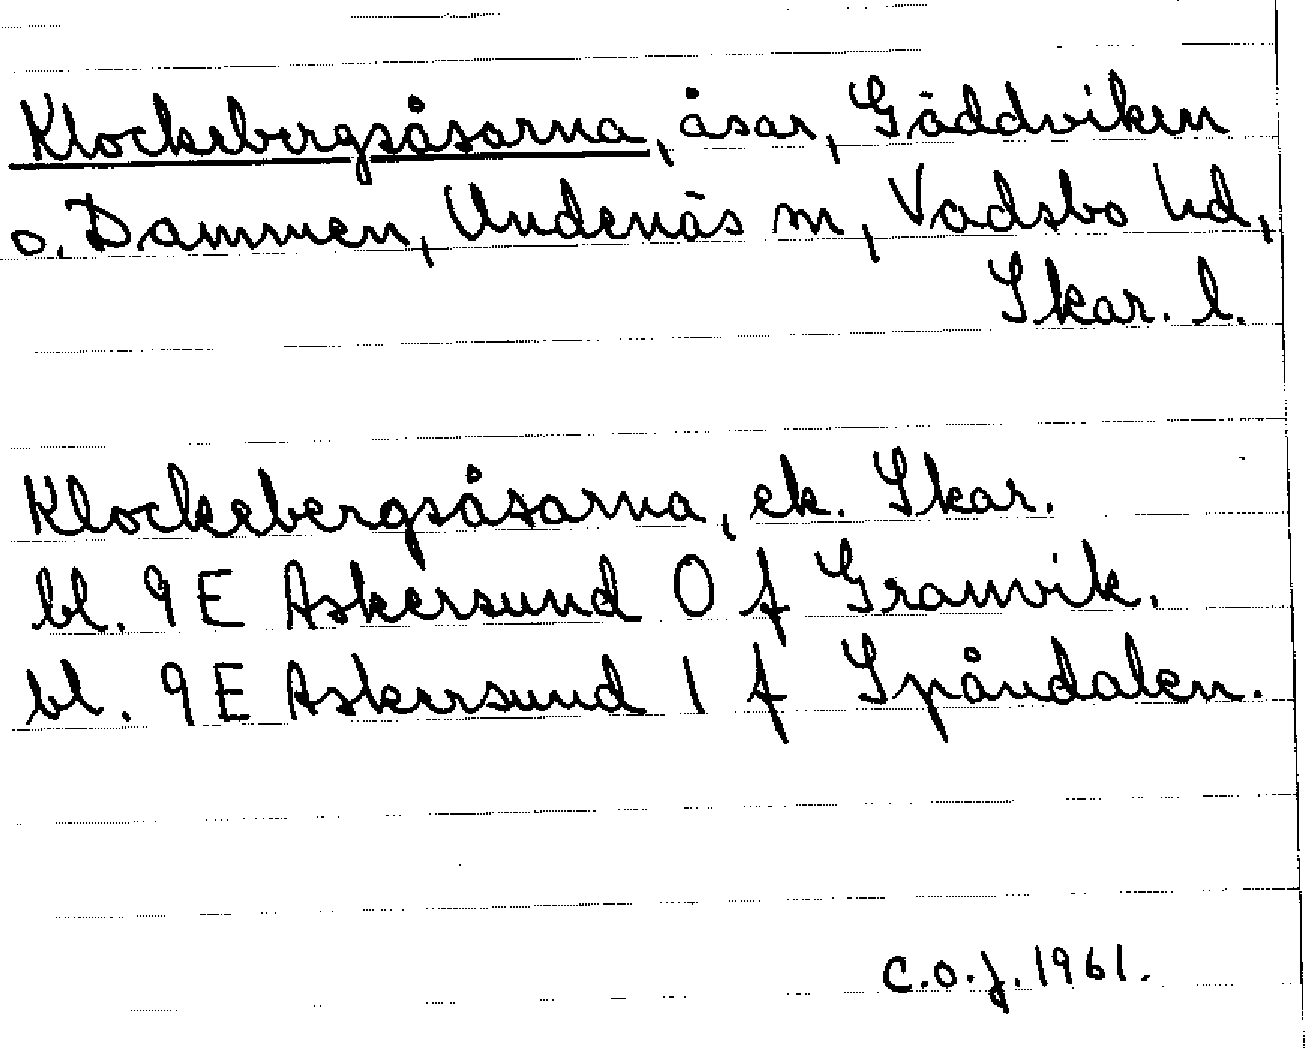 Klockebergsåsarna, åsar, Gäddviken
o. Dammen, Undenäs sn, Vadsbo hd,
Skar. l.
Klockebergsåsarna, ek. Skar.
bl. 9E Askersund 0 f Granvik.
bl. 9E Askersund 1 f Spåndalen.
C.O.J. 1961.